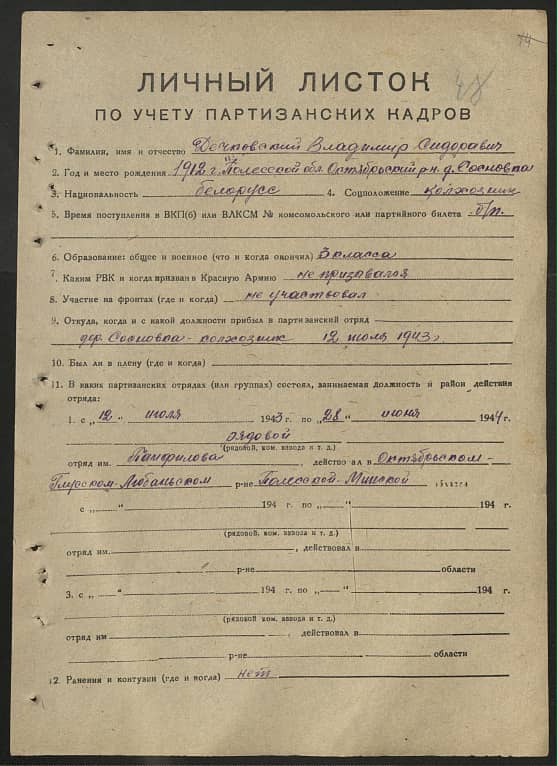 48
ЛИЧНЫЙ ЛИСТОК
ПО УЧЕТУ ПАРТИЗАНСКИХ КАДРОВ
1. Фамилия, имя и отчество Дечковский Владимир Сидорович
2. Год и место рождения 1912 г. Полесской обл. Октябрьский р-н. д. Сосновка
3. Национальность белорусс 4. Соцположение колхозник
5. Время поступления в ВКП(б) или ВЛКСМ № комсомольского или партийного билета б/п.
6. Образование: общее и военное (что и когда окончил) 3 класса
7. Каким РВК и когда призван в Красную Армию не призывался
8. Участие на фронтах (где и когда) не участвовал
9. Откуда, когда и с какой должности прибыл в партизанский отряд
дер. Сосновка - колхозник 12 июля 1943 г.
10. Был ли в плену (где и когда)
11. В каких партизанских отрядах (или группах) состоял, занимаемая должность и район действия
отряда:
1. с „12“ июля 1943 г. по „28“ июня 1944 г.
рядовой
(рядовой, ком. взвода и т. д.)
отряд им. Панфилова, действовал в Октябрьском-
Глусском-Любаньском р-не Полесской-Минской области
с „ “ 194 г. по „ “ 194 г.
(рядовой, ком. взвода и т. д.)
отряд им. , действовал в
р-не области
3. с „ “ 194 г. по „ “ 194 г.
(рядовой ком. взвода и т. д.)
отряд им , действовал в
р-не области
12. Ранения и контузии (где и когда) нет